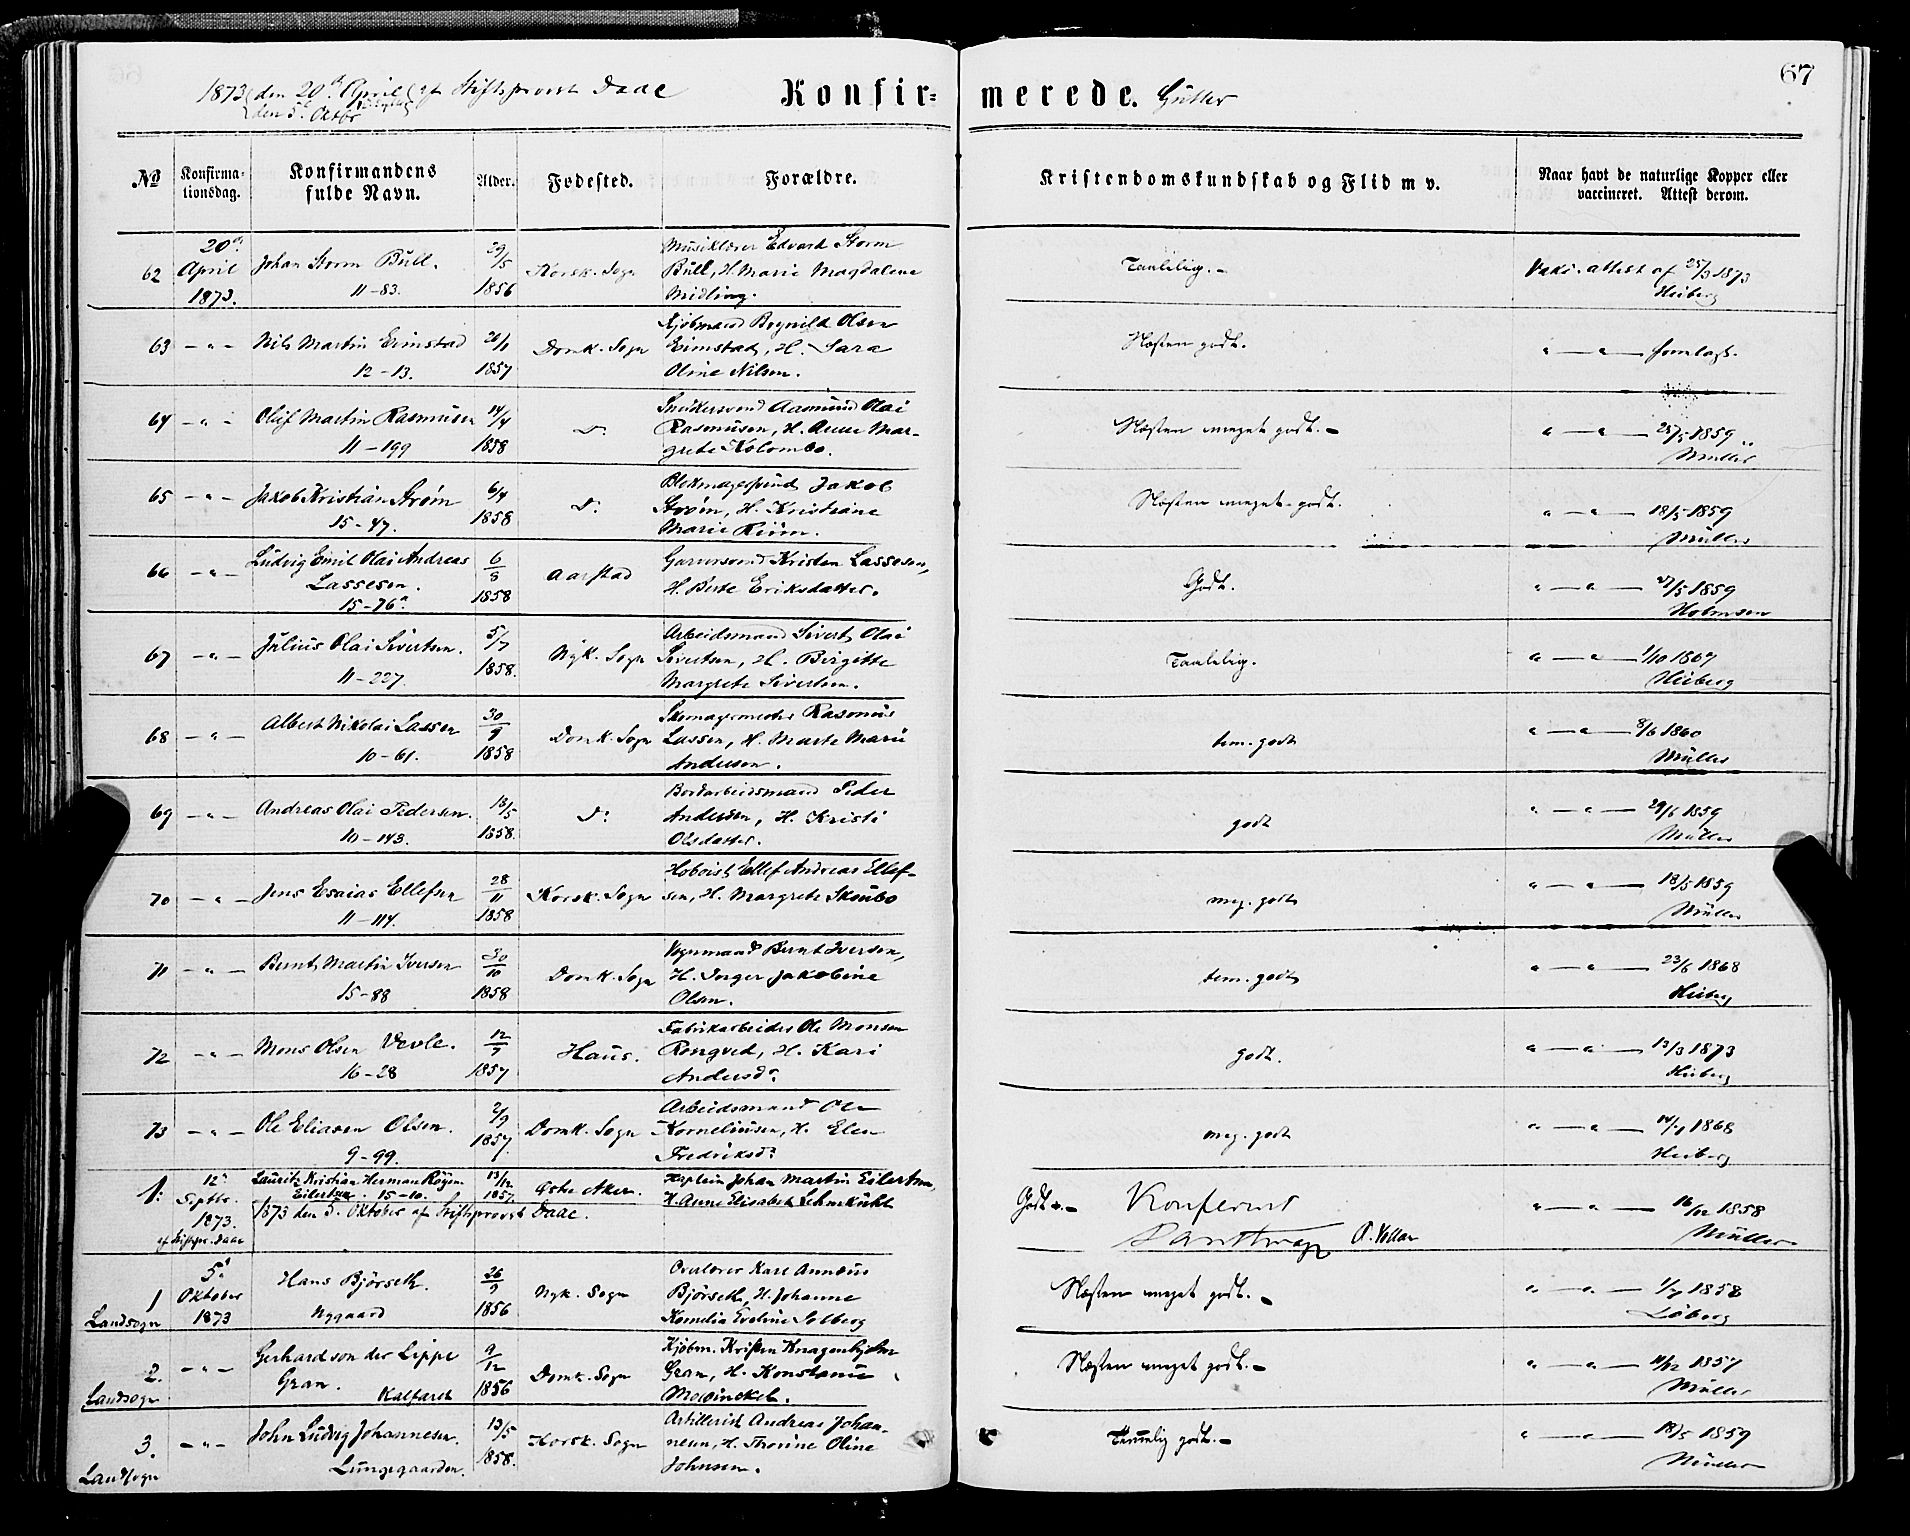 67
1873 den 20de April af Stiftsprovst Daae
den 5te Oktbr
Konfir- merede. Gutter
No
Konfirma-
tionsdag.
Konfirmandens
fulde Navn.
Alder.
Fødested.
Forældre.
Kristendomskundskab og Flid m v.
Naar havt de naturlige Kopper eller
vaccineret. Attest derom.
62 20de April 1873.
Johan Storm Bull.
11-83.
29/5 1856
Korsk. Sogn
Musiklærer Edvard Storm
Bull, H. Marie Magdalene
Midling.
Taalelig.-
Vaki. attest af 25/3 1873
Heiberg
63 - " -
Nils Martin Eimstad
12-13.
1857
Domk. Sogn
Kjøbmand Bognild Olsen
Eimstad, H. Sara
Oline Nilsen.
Næsten godt.
" — " — forelagt.
64 - " -
Oluf Martin Rasmusen
11-199
14/4 1858
Do
Snedkersvend Aamund Olai
Rasmusen, H. Anne Mar-
grete Kolombo.
Næsten meget godt.-
" — " — 25/5 1859
Müller
65 - " -
Jakob Kristian Strøm
15-47.
6/4 1858
Do
Blokmagersvend Jakob
Strøm, H. Kristiane
Marie Riim.
Næsten meget godt.
" — " — 18/5 1859
Müller
66 - " -
Ludvig Emil Olai Andreas
Lassesen.
15-76a
6/8 1858
Aarstad
Garversvend Kristen Lassesen,
H. Berte Eriksdatter.
Godt.
" — " — 27/5 1859
Holmsen
67 - " -
Julius Olai Sivertsen.
11-227.
5/7 1858.
Nyk. Sogn
Arbeidsmand Sivert Olai
Sivertsen, H. Birgitte
Margrete Sivertsen.
Taalelig.
" — " — 1/10 1867
Heiberg
68 - " -
Albert Nikolai Lassen
10-61.
30/9 1858
Domk. Sogn
Skomagermester Rasmus
Lassen, H. Marte Marie
Andersen.
tem. godt
" — " — 8/6 1860
Müller
69 - " -
Andreas Olai Pedersen.
10-143.
18/5 1858.
Do
Bordarbeidsmand Peder
Andersen, H. Kristi
Olsdatter.
godt
" — " — 29/6 1859
Müller
70 - " -
Jens Esaias Ellefsen
11-114.
28/11 1858
Korsk. Sogn
Hoboist Ellef Andreas Ellef-
sen, H. Margrete Skoubo
meg. godt
" — " — 18/5 1859
Müller
71 - " -
Bernt Martin Iversen
15-88
30/10 1858
Domk. Sogn
Vognmand Bernt Iversen,
H. Inger Jakobine
Olsen.
tem. godt
" — " — 23/6 1868
Heiberg
72 - " -
Mons Olsen Vevle.
16-28
12/7 1857
Haus.
Fabrikarbeider Ole Monsen
Rongved, H. Kari
Andersdr
godt.
" — " — 13/3 1873
Heiberg
73 - " -
Ole Eliasen Olsen.
9-99.
2/9 1857.
Domk. Sogn
Arbeidsmand Ole
Korneliusen, H. Elen
Fredriksdr
meg. godt
" — " — 1868
Heiberg
1: 12te Septbr. 1873.
af Stiftspr. Daae
Lauritz Kristian Herman
Eilertsen. 15-10.
13/12 1857.
Østre Aker.
Kaptein Johan Martin Eilertsen,
H. Anne Elisabeth Lehmkuhl
Godt.-
Konfermt
P. Vollan
" — " — 16/12 1858
Müller
1873 den 5. Oktober af Stiftsprovst Daae.
1 Landsogn
5te Oktober 1873
Hans Bjørseth.
Nygaard
26/9 1856
Nyk. Sogn
Overlærer Karl Annæus
Bjørseth, H. Johanne
Kornelia Eveline Solberg
Næsten meget godt.-
" — " — 1858
Løberg
2. Landsogn - " -
Gerhard von der Lippe
Gran.
Kalfaret
9/12 1856
Domk. Sogn
Kjøbm. Kristen Knagenhjelm
Gran, H. Konstanse
Mowinckel.
Næsten meget godt.-
" — " — 11/12 1857
Müller
3. Landsogn - " -
John Ludvig Johannesen.
Lungegaarden.
13/5 1858.
Korsk. Sogn
Artillerist Andreas Johan-
nesen, H. Thorine Oline
Johnsen.
Temmelig godt.-
" — " — 18/5 1859
Müller